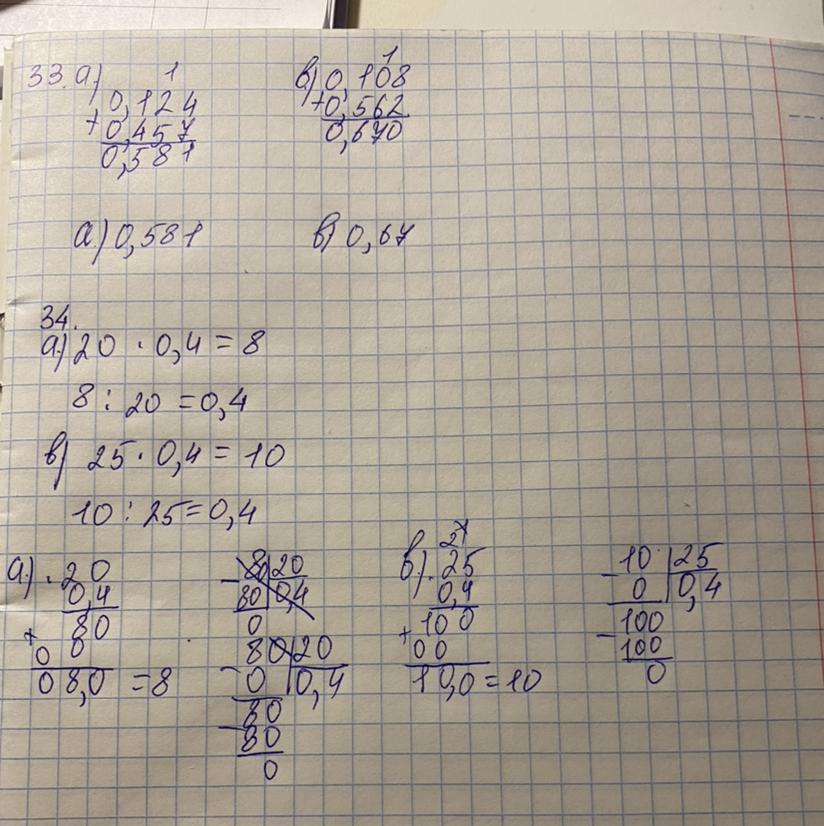 33. а) 1
0,124
+
0,457
0,581
в) 1
0,108
+0,562
0,670
а) 0,581
в) 0,67
34.
а) 20 · 0,4 = 8
8 : 20 = 0,4
в) 25 · 0,4 = 10
10 : 25 = 0,4
а) · 20
0,4
80
+
0 0
0 8,0 = 8
- 8 20
80 0,4
0
80 20
- 0 0,4
80
- 80
0
в) 2
· 25
0,4
100
+
00
10,0 = 10
- 10 25
0 0,4
- 100
100
0